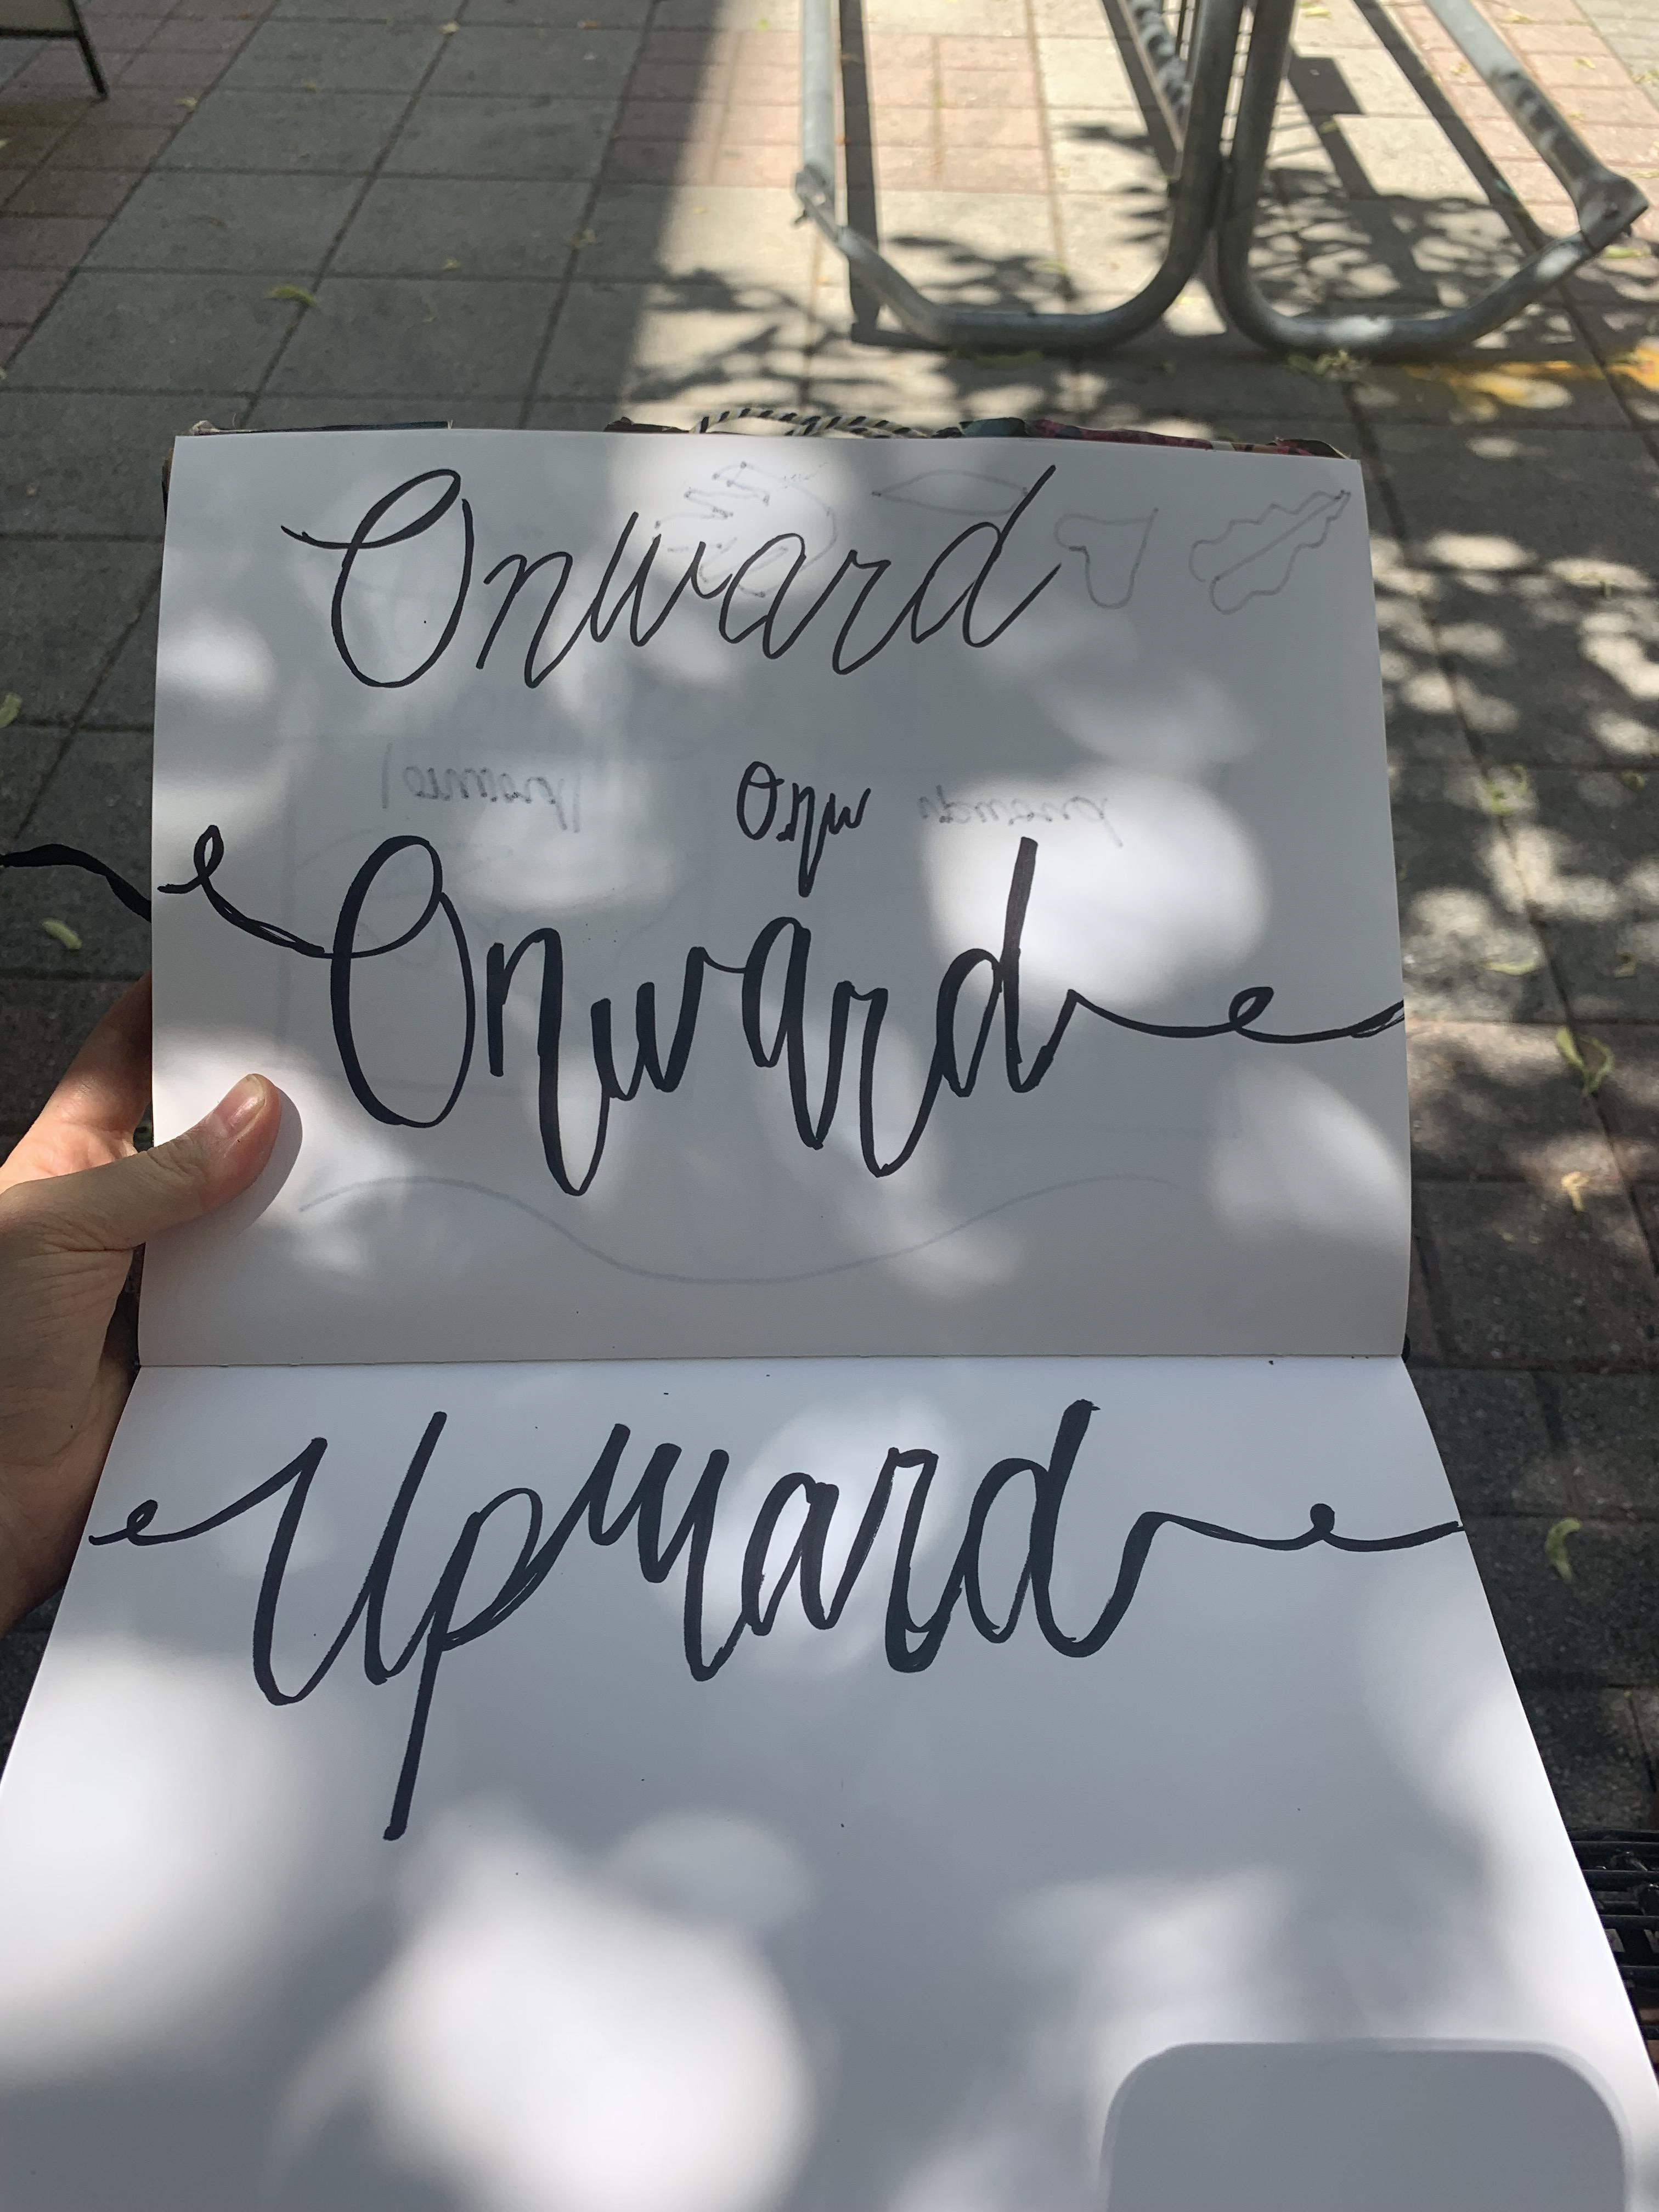 Onward
Onw
Onward
Upward